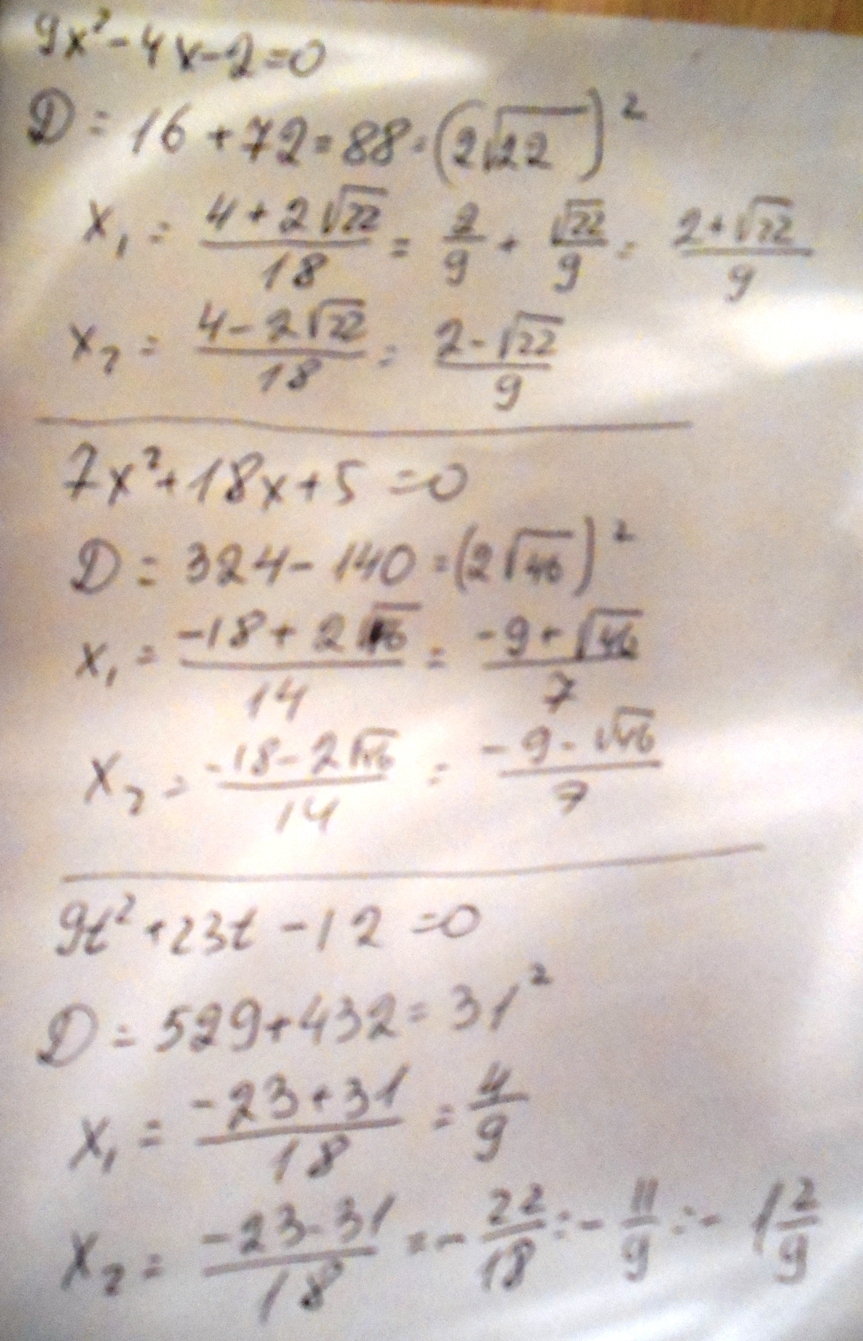 9x² - 4x - 2 = 0
D = 16 + 72 = 88 = (2√22)²
x₁ = (4 + 2√22)/18 = 2/9 + √22/9 = (2 + √22)/9
x₂ = (4 - 2√22)/18 = (2 - √22)/9
7x² + 18x + 5 = 0
D = 324 - 140 = (2√46)²
x₁ = (-18 + 2√46)/14 = (-9 + √46)/7
x₂ = (-18 - 2√46)/14 = (-9 - √46)/7
9t² + 23t - 12 = 0
D = 529 + 432 = 31²
x₁ = (-23 + 31)/18 = 4/9
x₂ = (-23 - 31)/18 = - 22/18 = - 11/9 = - 1 2/9